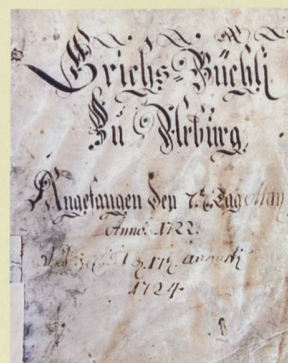 Grichs=Büchli
Zu Arburg,
Angefangen den 7.t. Tag May
Anno. 1722.
1724.